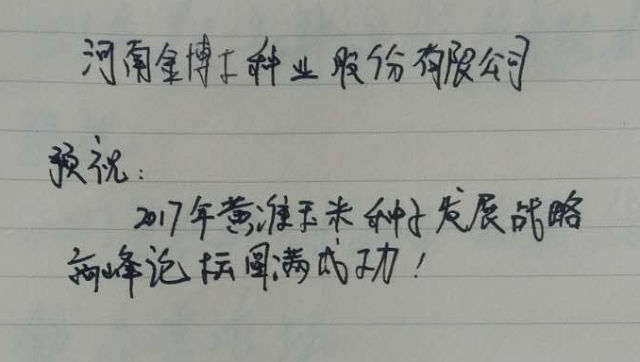 河南金博士种业股份有限公司
预祝：
2017年黄淮玉米种子发展战略
高峰论坛圆满成功！